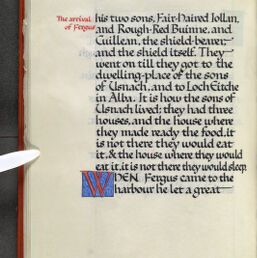 The arrival
of Fergus
his two sons, Fair-haired Iollan,
and Rough-Red Buinne, and
Cuillean, the shield-bearer,
and the shield itself. They
went on till they got to the
dwelling-place of the sons
of Usnach, and to Loch Eitche
in Alba. It is how the sons of
Usnach lived: they had three
houses, and the house where
they made ready the food, it
is not there they would eat
it, & the house where they would
eat it, it is not there they would sleep.
WHEN Fergus came to the
harbour he let a great